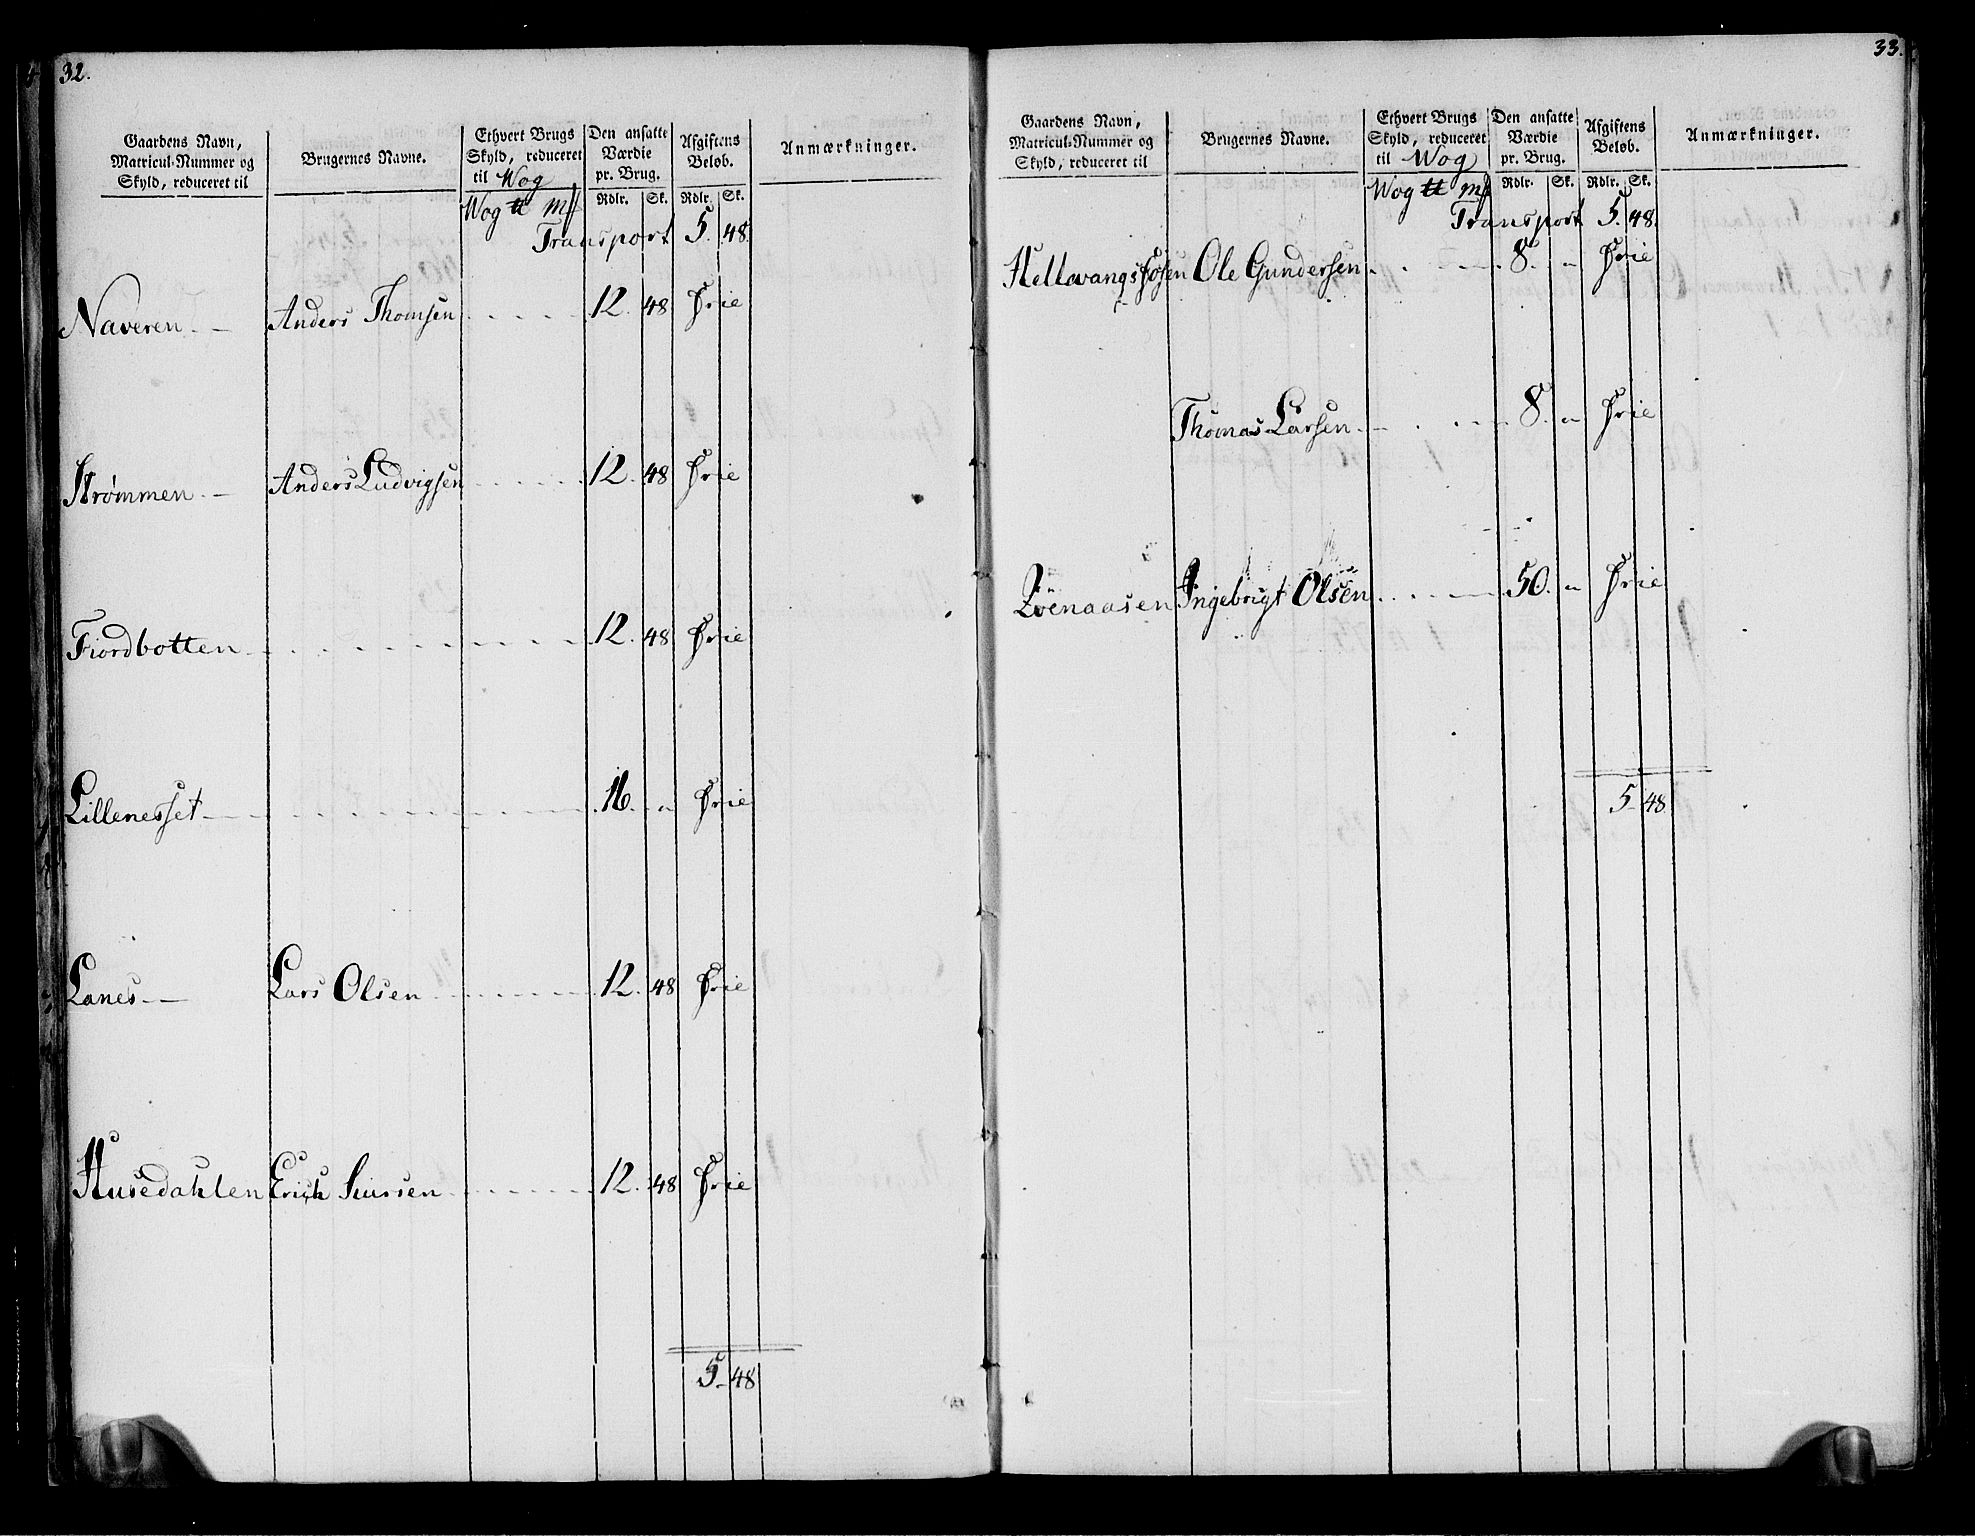 32.
Gaardens Navn, Matricul-Nummer og Skyld, reduceret til
Brugernes Navne.
Ethvert Brugs Skyld, reduceret til Wog
Den ansatte Værdie pr. Brug.
Afgiftens Beløb.
Anmærkninger.
Wog ℔ mf Rdlr. Sk. Rdlr. Sk.
Transport 5. 48.
Naveren Anders Thomsen 12. 48 Frie
Strømmen Anders Ludvigsen 12. 48 Frie
Fiordbotten 12. 48 Frie
Lillenesset 16. " Frie
Lanes Lars Olsen 12. 48 Frie
Husedahlen Erich Siursen 12. 48 Frie
5 48
33.
Gaardens Navn, Matricul-Nummer og Skyld, reduceret til
Brugernes Navne.
Ethvert Brugs Skyld, reduceret til Wog
Den ansatte Værdie pr. Brug.
Afgiftens Beløb.
Anmærkninger.
Wog ℔ mf Rdlr. Sk. Rdlr. Sk.
Transport 5. 48.
Ole Gundersen 8. " Frie
Thomas Larsen 8. " Frie
Ingebrigt Olsen 50. " Frie
5 48